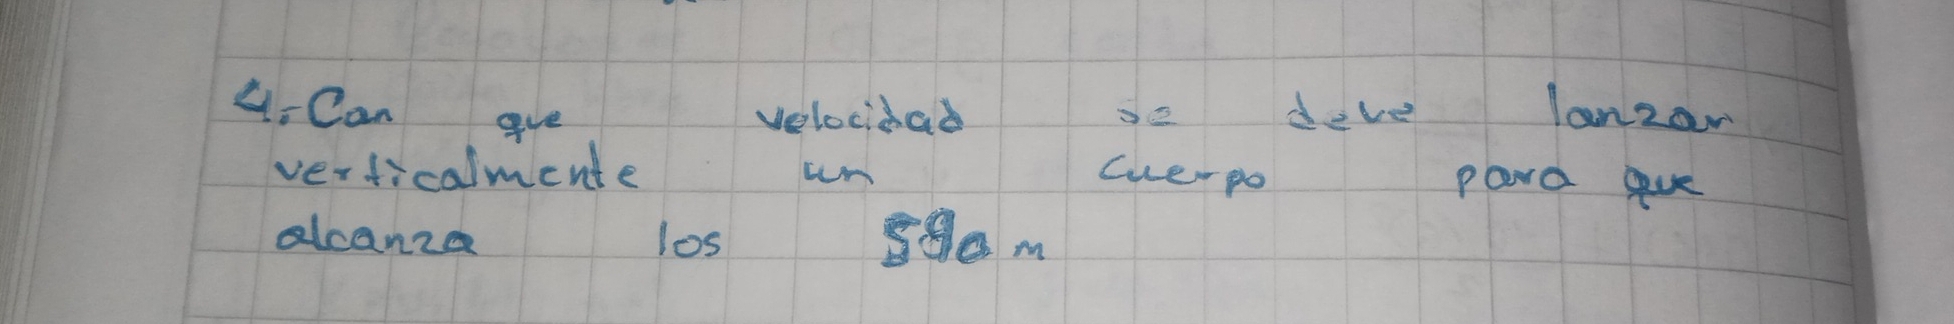 4.-Can que velocidad se deve lanzar
verticalmente un cuerpo para que
alcanza los 590 m